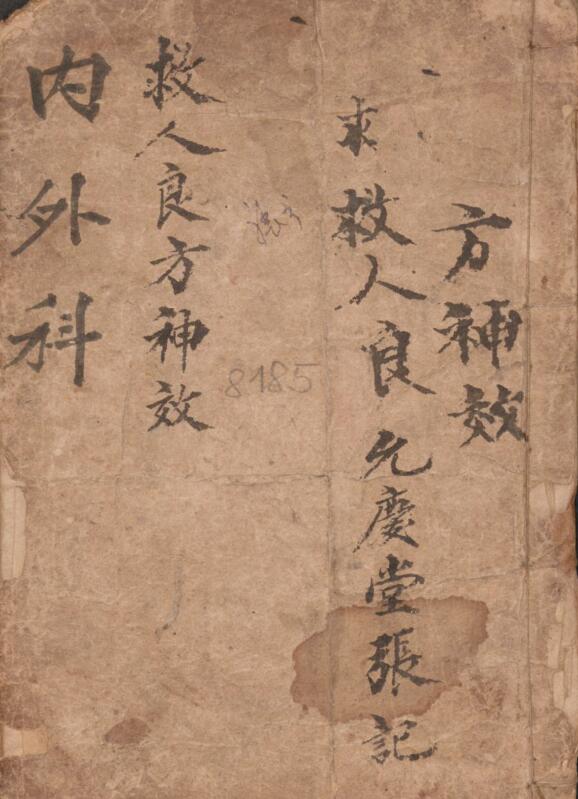 方神效
求救人良允慶堂張記
8185
救人良方神效
内外科